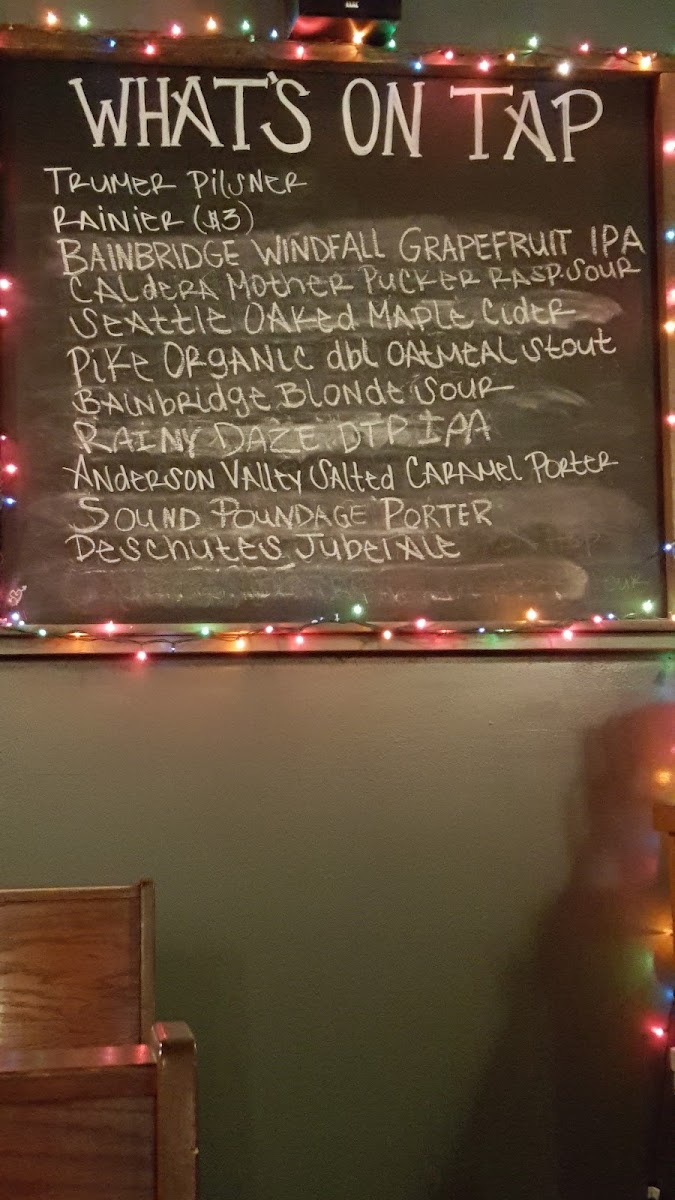 WHAT'S ON TAP
TRUMER PilSNER
RAINIER ($3)
BAINBRIDGE WINDFALL GRAPEFRUIT IPA
CALdERA MOthER PUCKER RASP. SOUR
SEAttLE OAKed MAPLE Cider
PiKE ORgANIC dbl OAtMEAL Stout
BAINbRidgE BLONdE SOUR
RAINY DAZE DTP IPA
ANDERSON VAllEY SAlted CARAMEl PORTER
SOUND POUNDAGE PORTER
DESChUtES JubElAlE